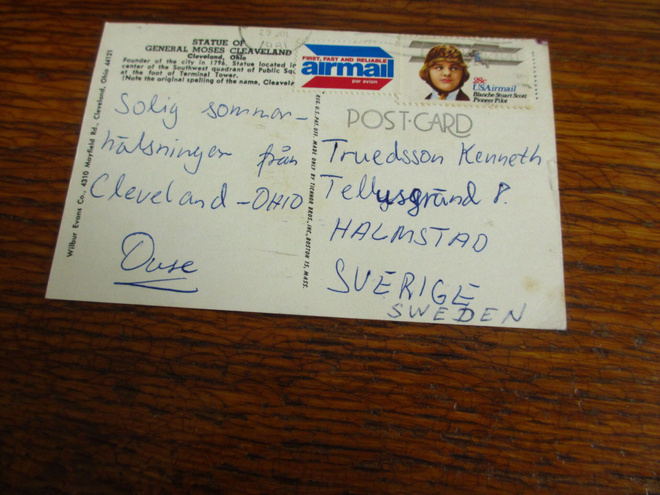 STATUE OF
GENERAL MOSES CLEAVELAND
Cleveland, Ohio
Founder of the city in 1796. Statue located in
center of the Southwest quadrant of Public Squ
at the foot of Terminal Tower.
(Note the original spelling of the name, Cleavela
FIRST, FAST AND RELIABLE
airmail
par avion
28c
USAirmail
Blanche Stuart Scott
Pioneer Pilot
POST-CARD
Solig sommar-
hälsningar från
Cleveland-OHIO
Truedsson Kenneth
Tellusgränd 8.
HALMSTAD
SVERIGE
SWEDEN
Wilbur Evans Co., 4310 Mayfield Rd., Cleveland, Ohio 44121
REG. U.S. PAT. OFF. MADE ONLY BY TICHNOR BROS., INC., BOSTON 15, MASS.